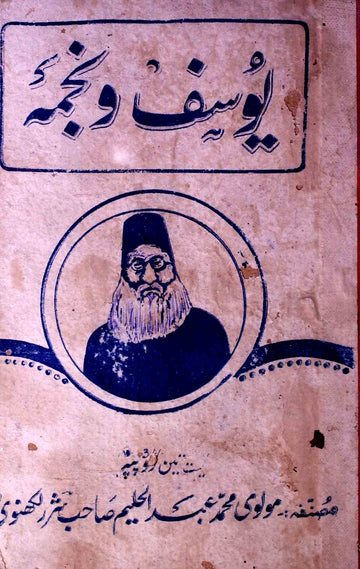 یوسف و نجمہ
قیمت تین روپیہ
مصنفہ: مولوی محمد عبد الحلیم صاحب شرر لکھنوی